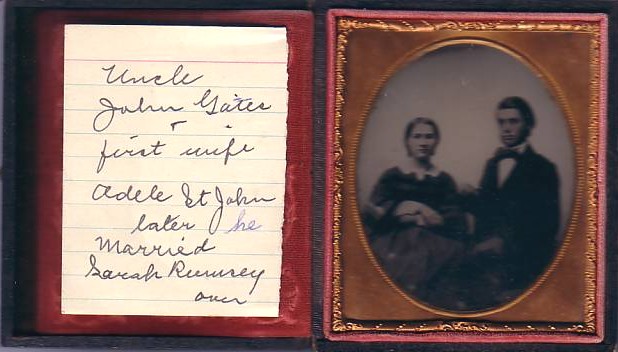 Uncle
John Gates
+
first wife
Adele St John
later he
Married
Sarah Rumsey
over